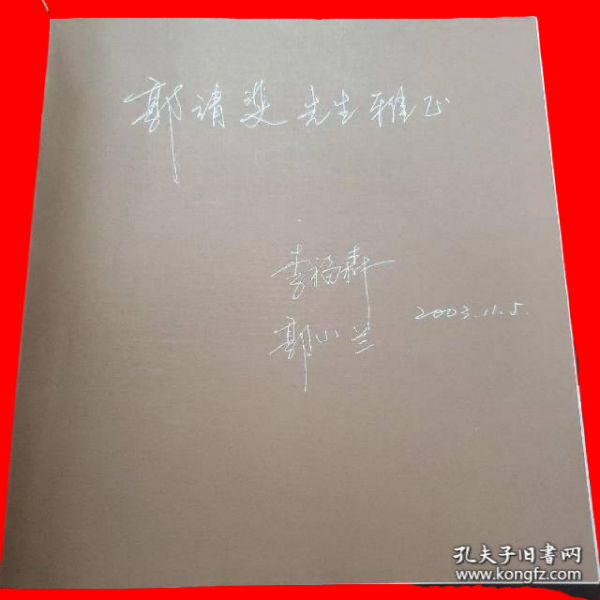 郭靖斐先生雅正
李福森
郭小兰
2003.11.5.
孔夫子旧书网
www.kongfz.com